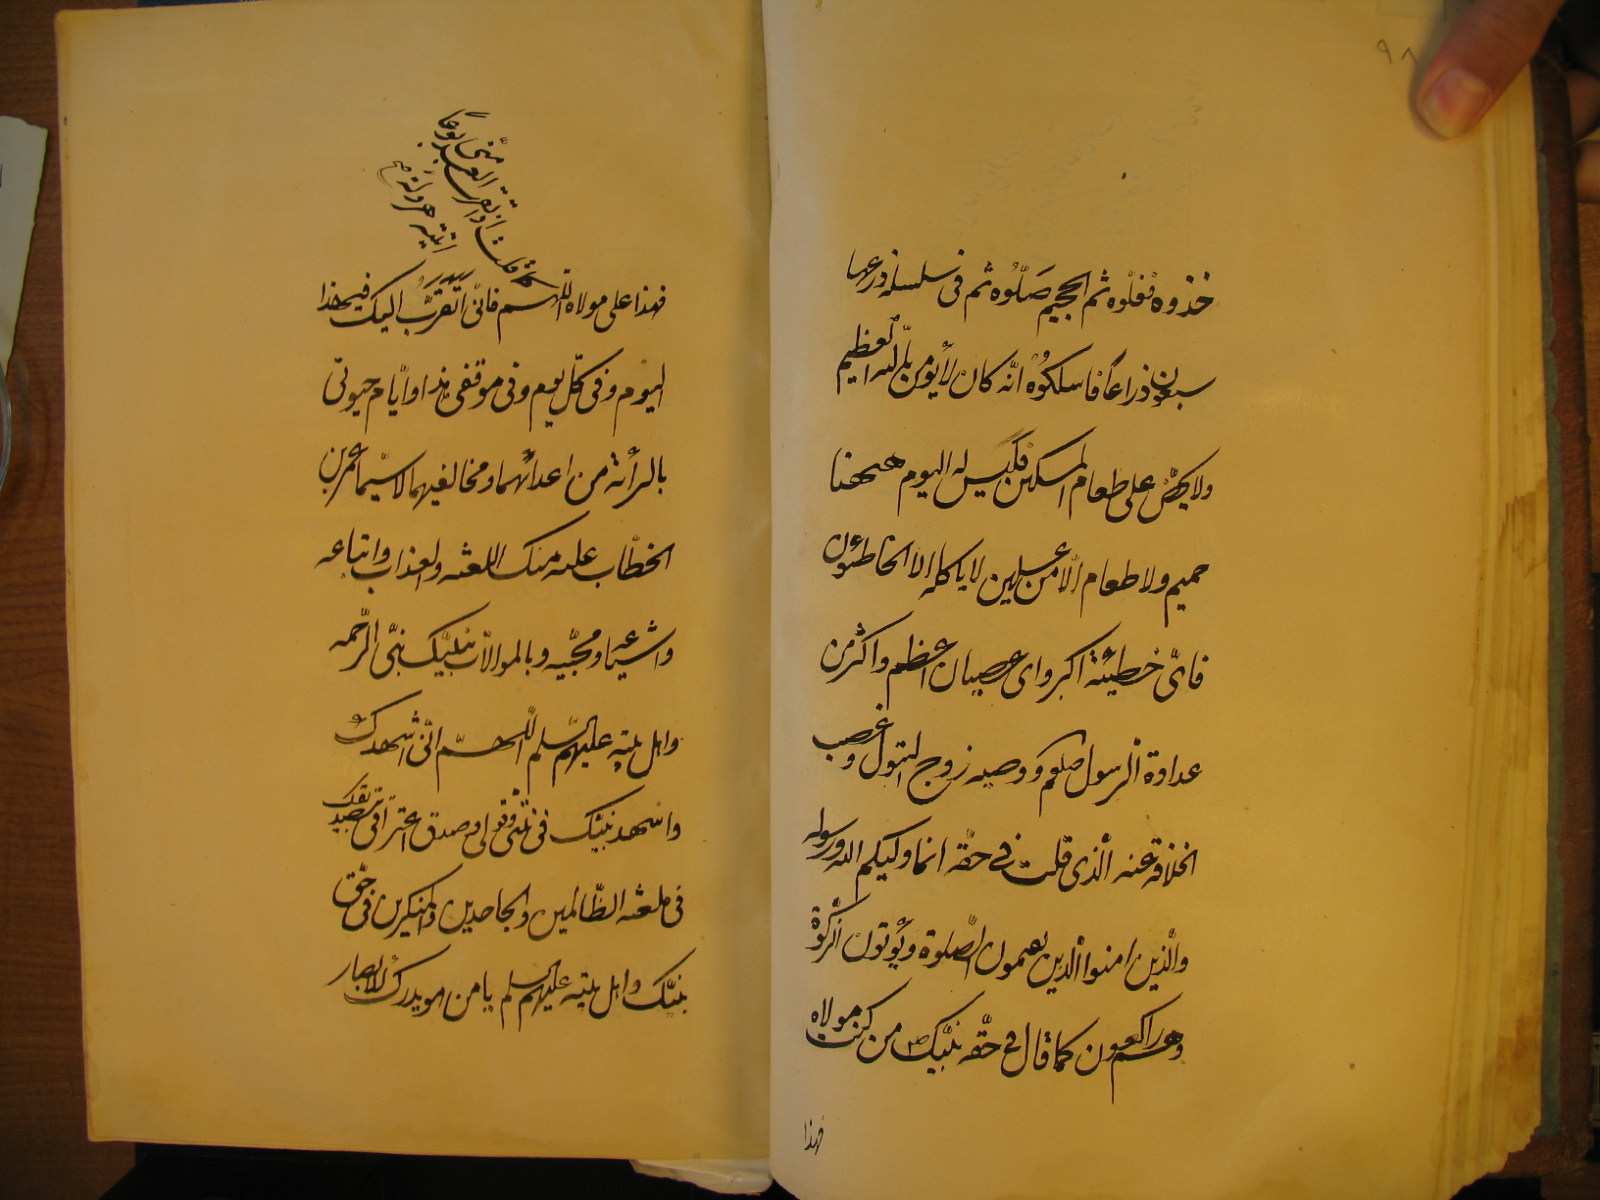 ٩٨
خذوه فغلوه ثم الجحيم صلّوه ثم فى سلسله ذرعها
سبعون ذراعاً فاسلكوه انّه كان لا يؤمن بالله العظيم
ولا يحضّ على طعام المسكين فليس له اليوم ههنا
حميم ولا طعام الّا من غسلين لا ياكله الا الخاطئون
فاىّ خطيئة اكبر واى عصيان اعظم واكثر من
عداوة الرسول صلعم ووصيه زوج البتول وغصب
الخلافة عنه الّذى قلت فى حقّه انما وليكم الله ورسوله
والّذين امنوا الّذين يقيمون الصّلوة ويؤتون الزّكوة
وهم راكعون كما قال فى حقّه نبيّك ص من كنت مولاه
فهذا
كما قلت واذا تقرب العبد
منّى بوعاً
اتيته هرولة صح
فهذا على مولاه اللّهم فانّى اتقرّب اليك فيهذا
اليوم وفى كلّ يوم وفى موقفى هذا وايّام حيوتى
بالبرأئة من اعدائهما ومخالفيهما لاسيّما عمر بن
الخطّاب عليه منك اللعنه والعذاب واتباعه
واشياعه ومحبّيه وبالموالاّت بنبيّك نبىّ الرّحمه
واهل بيته عليهم السلم اللّهمّ انّى اشهدك
واشهد نبيّك فى نيّتى وقولى وصدق اعترافى بتصديقك
فى ملعنه الظّالمين والجاحدين والمنكرين فى حقّ
نبيّك واهل بيته عليهم السلم يا من هو يدرك الابصار